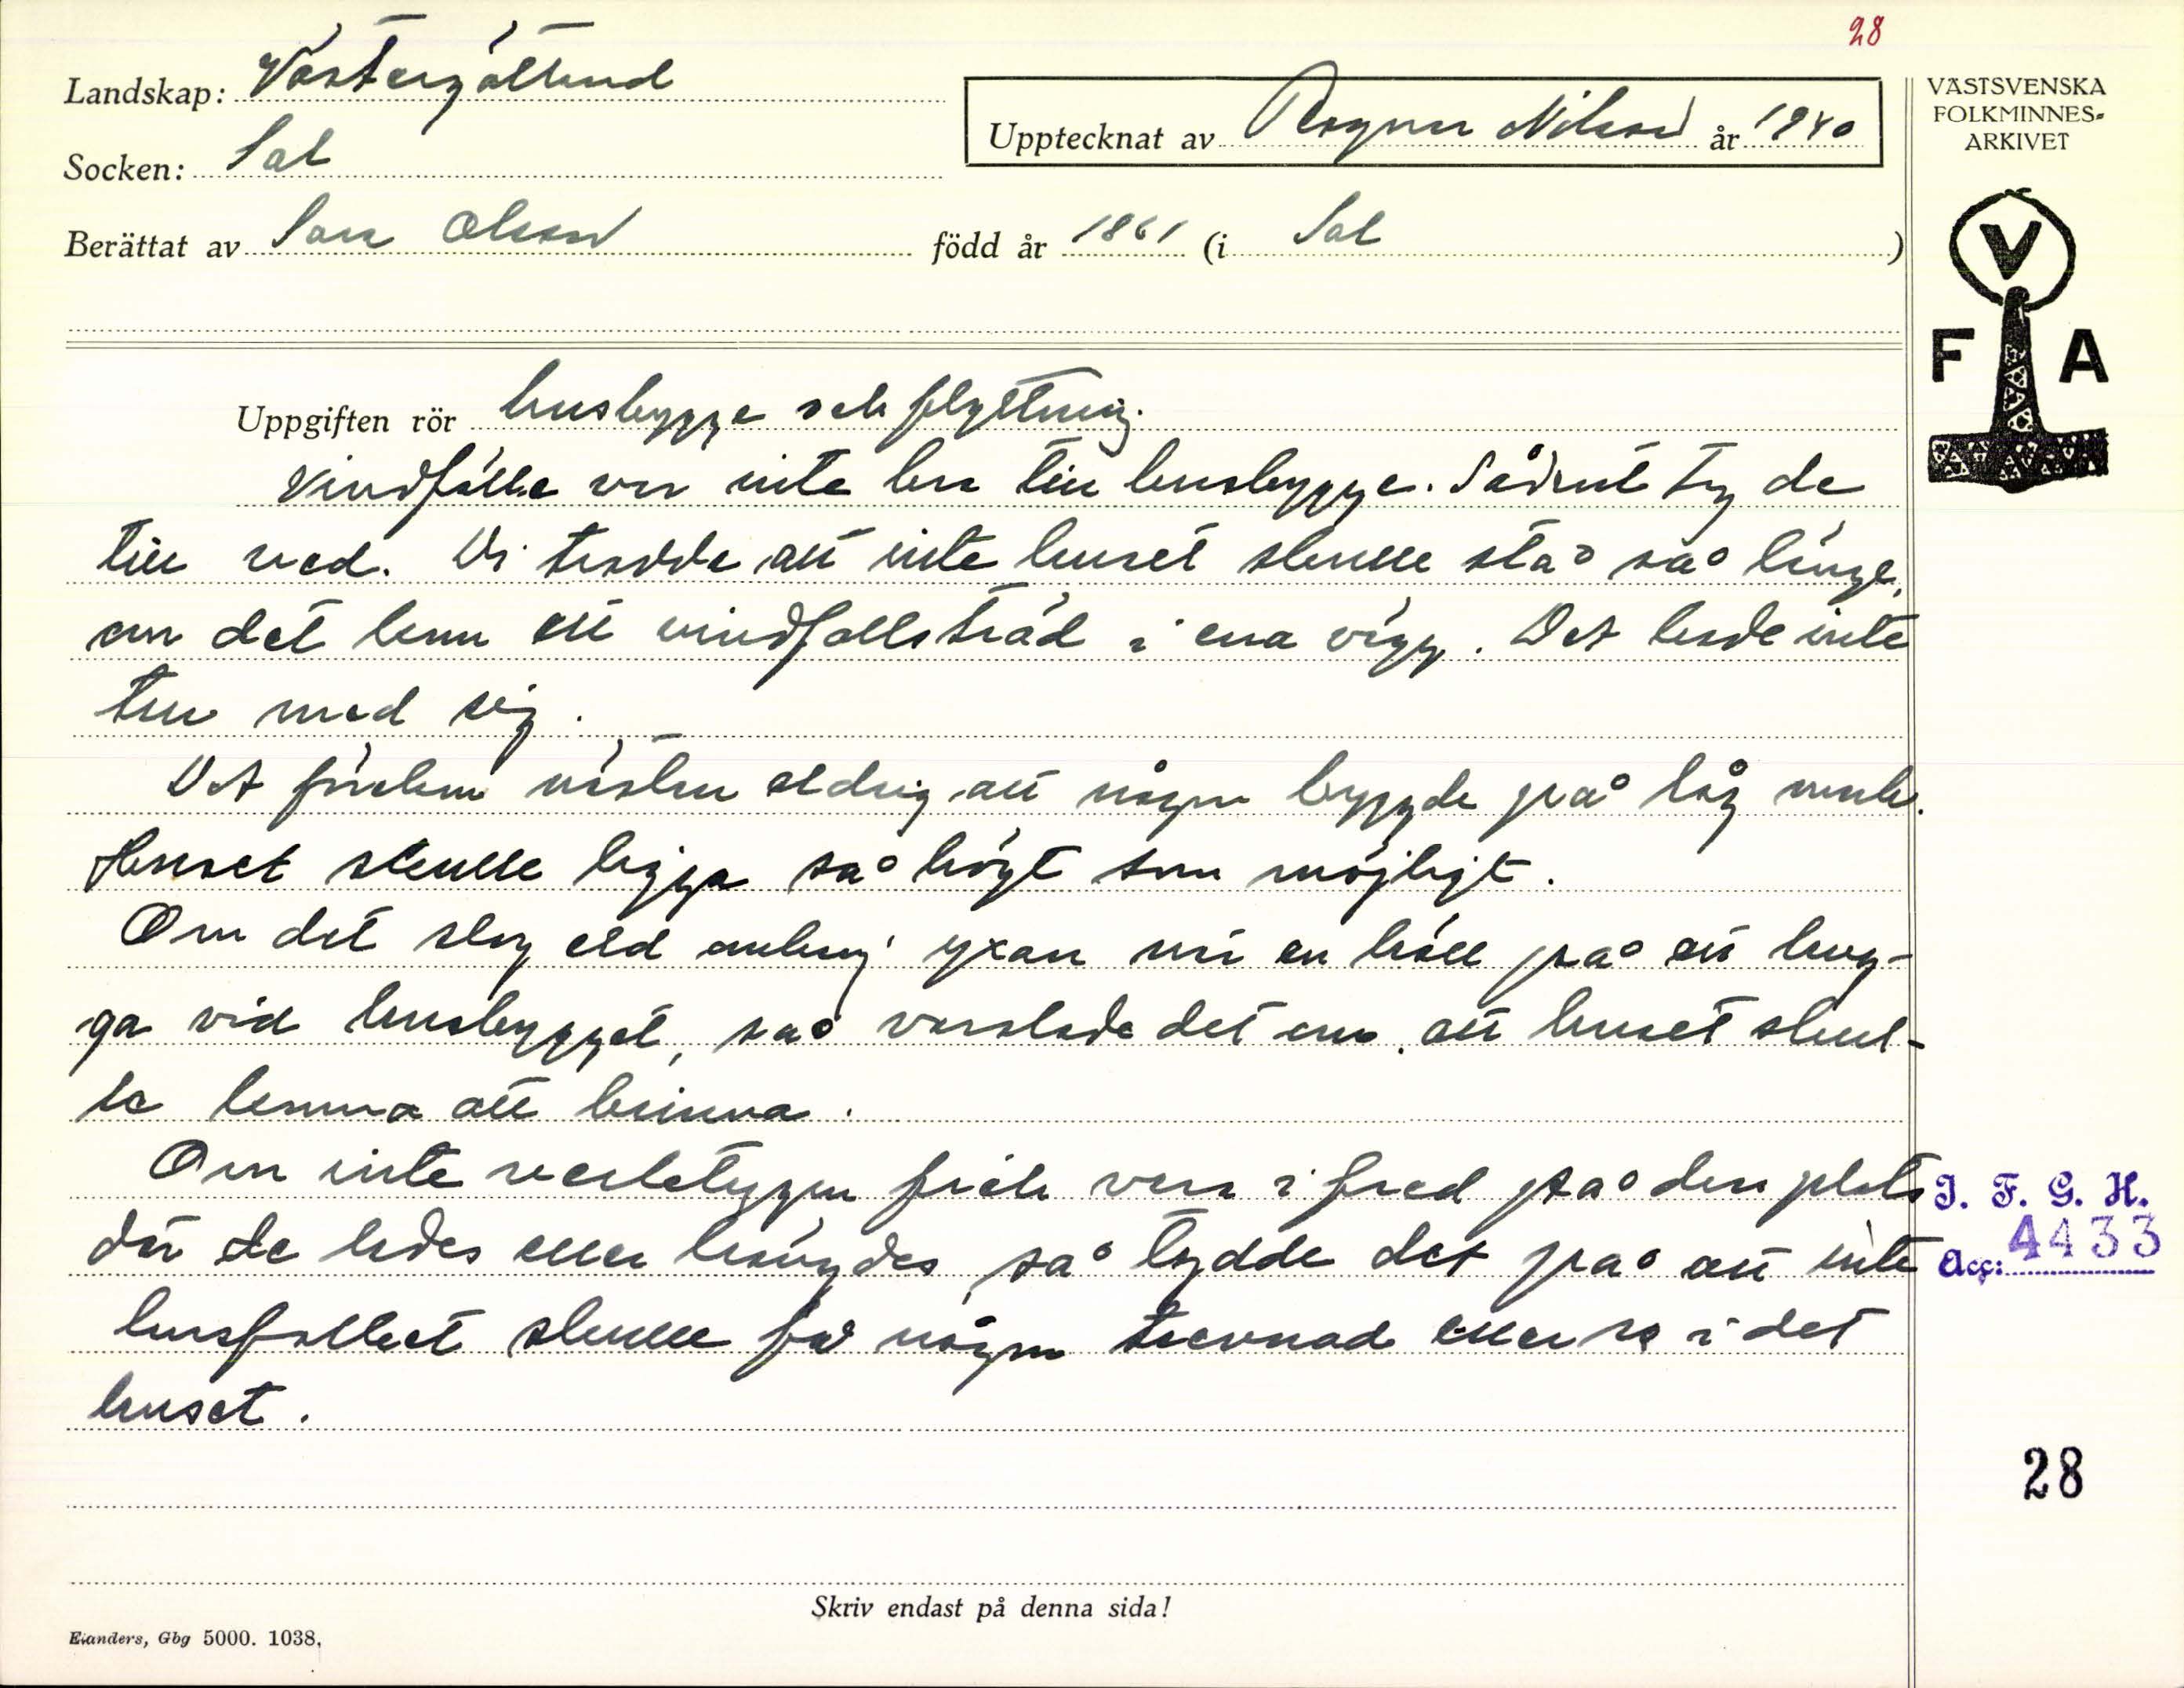 28
Landskap: Västergötland
VÄSTSVENSKA
FOLKMINNES-
ARKIVET
Upptecknat av Ragnar Nilsson år 1940
Socken: Sal
Berättat av Lars Olsson född år 1861 (i Sal)
V
F A
Uppgiften rör husbygge och flyttning.
Vindfälle var inte bra till husbygge. Sådant tog de
till ved. Di trodde att inte huset skulle stå så länge,
om det kom ett vindfallsträd i ena vägg. Det hade inte
tur med sig.
Det förekom nästan aldrig att någon byggde på låg mark.
Huset skulle ligga så högt som möjligt.
Om det slog eld omkring yxan när en höll på att hug-
ga vid husbygget, så varslade det om att huset skul-
le komma att brinna.
Om inte verktygen fick vara i fred på den plats
där de lades eller hängdes, så tydde det på att inte
husfolket skulle få någon trevnad eller ro i det
huset.
I. F. G. H.
Acc: 4433
28
Skriv endast på denna sida!
Elanders, Gbg 5000. 1038.